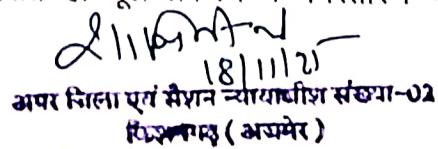 18/11/21
अपर जिला एवं सैशन न्यायाधीश संख्या-02
किशनगढ़ (अजमेर)